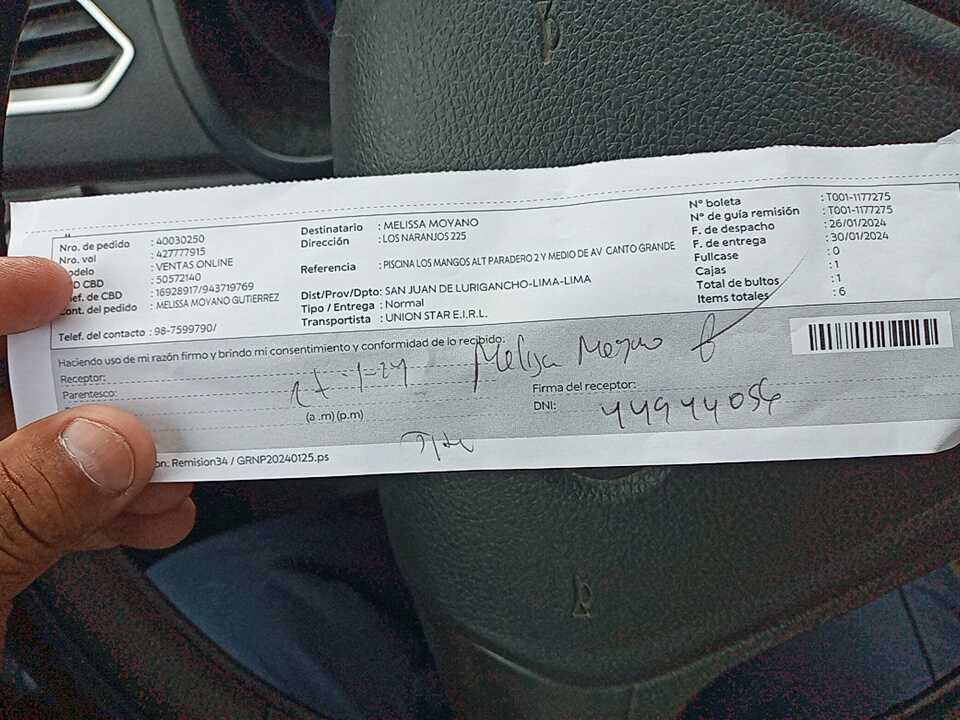 Nro. de pedido : 40030250
Nro. vol : 427777915
odelo : VENTAS ONLINE
D CBD : 50572140
ef. de CBD : 16928917/943719769
ont. del pedido : MELISSA MOYANO GUTIERREZ
Telef. del contacto : 98-7599790/
Destinatario : MELISSA MOYANO
Dirección : LOS NARANJOS 225
Referencia : PISCINA LOS MANGOS ALT PARADERO 2 Y MEDIO DE AV CANTO GRANDE
Dist/Prov/Dpto: SAN JUAN DE LURIGANCHO-LIMA-LIMA
Tipo / Entrega : Normal
Transportista : UNION STAR E.I.R.L.
N° boleta : T001-1177275
N° de guía remisión : T001-1177275
F. de despacho : 26/01/2024
F. de entrega : 30/01/2024
Fullcase : 0
Cajas : 1
Total de bultos : 1
Items totales : 6
Haciendo uso de mi razón firmo y brindo mi consentimiento y conformidad de lo recibido:
Receptor:
Parentesco:
(a .m) (p.m)
Melisa Moyano
Firma del receptor:
DNI: 44944056
on: Remision34 / GRNP20240125.ps